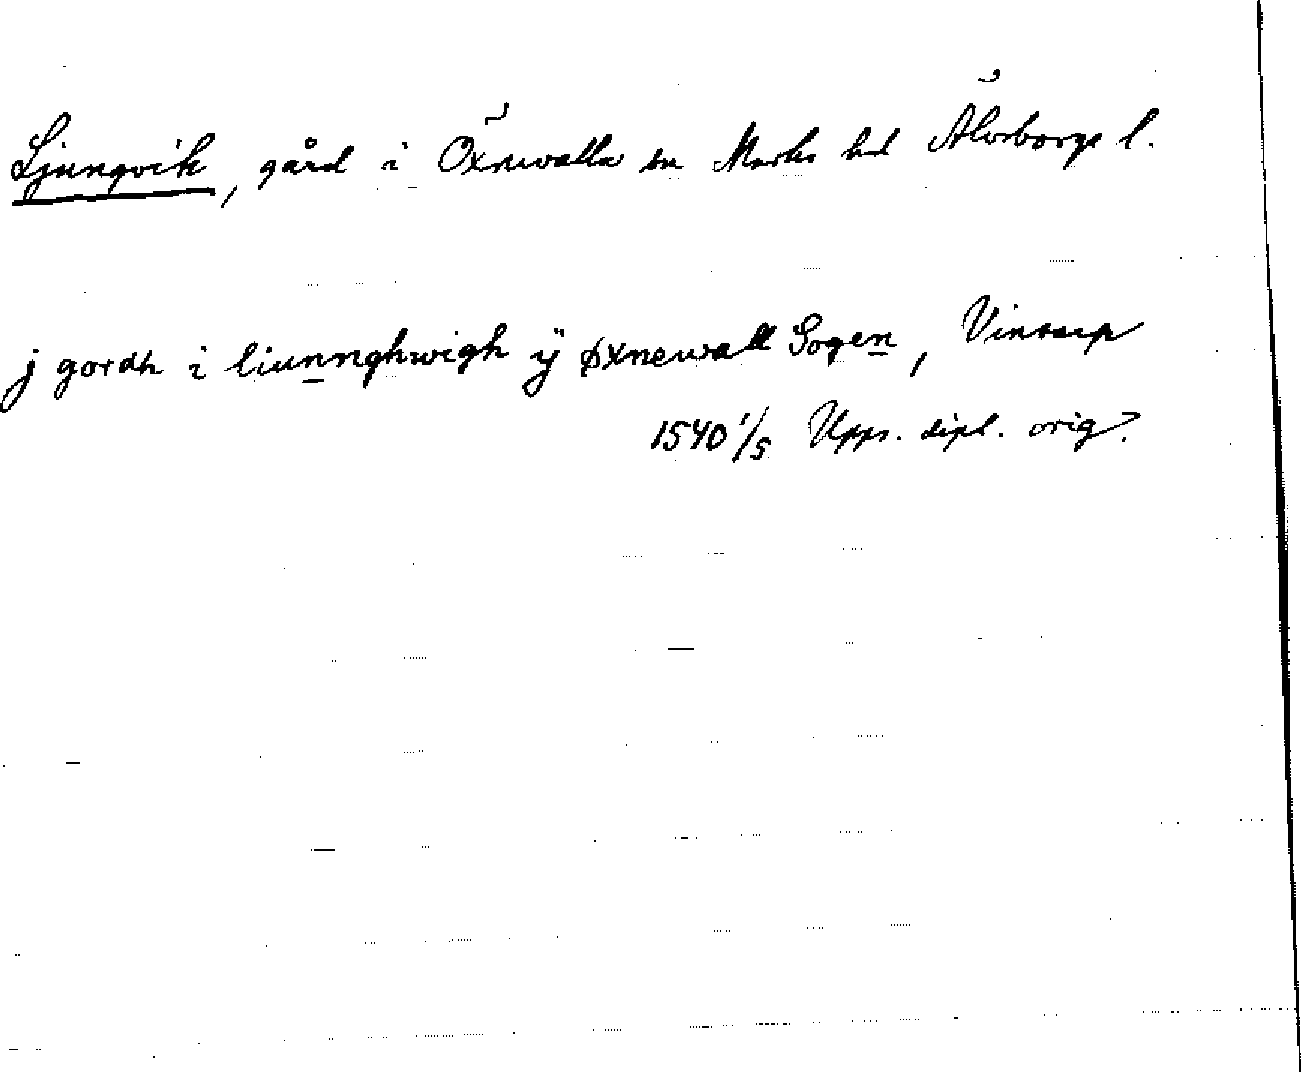 Ljungvik, gård i Öxnevalla sn Marks hd Älvsborgs l.
j gordh i liunnghwigh ÿ øxnewall Sogen, Vintorp
1540 1/5 Upps. dipl. orig.